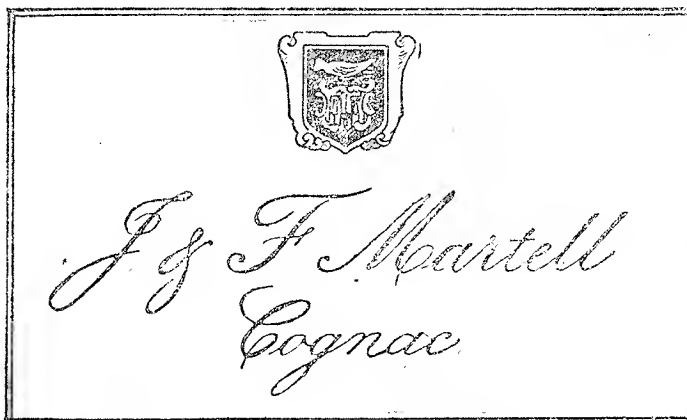 J & F Martell
Cognac